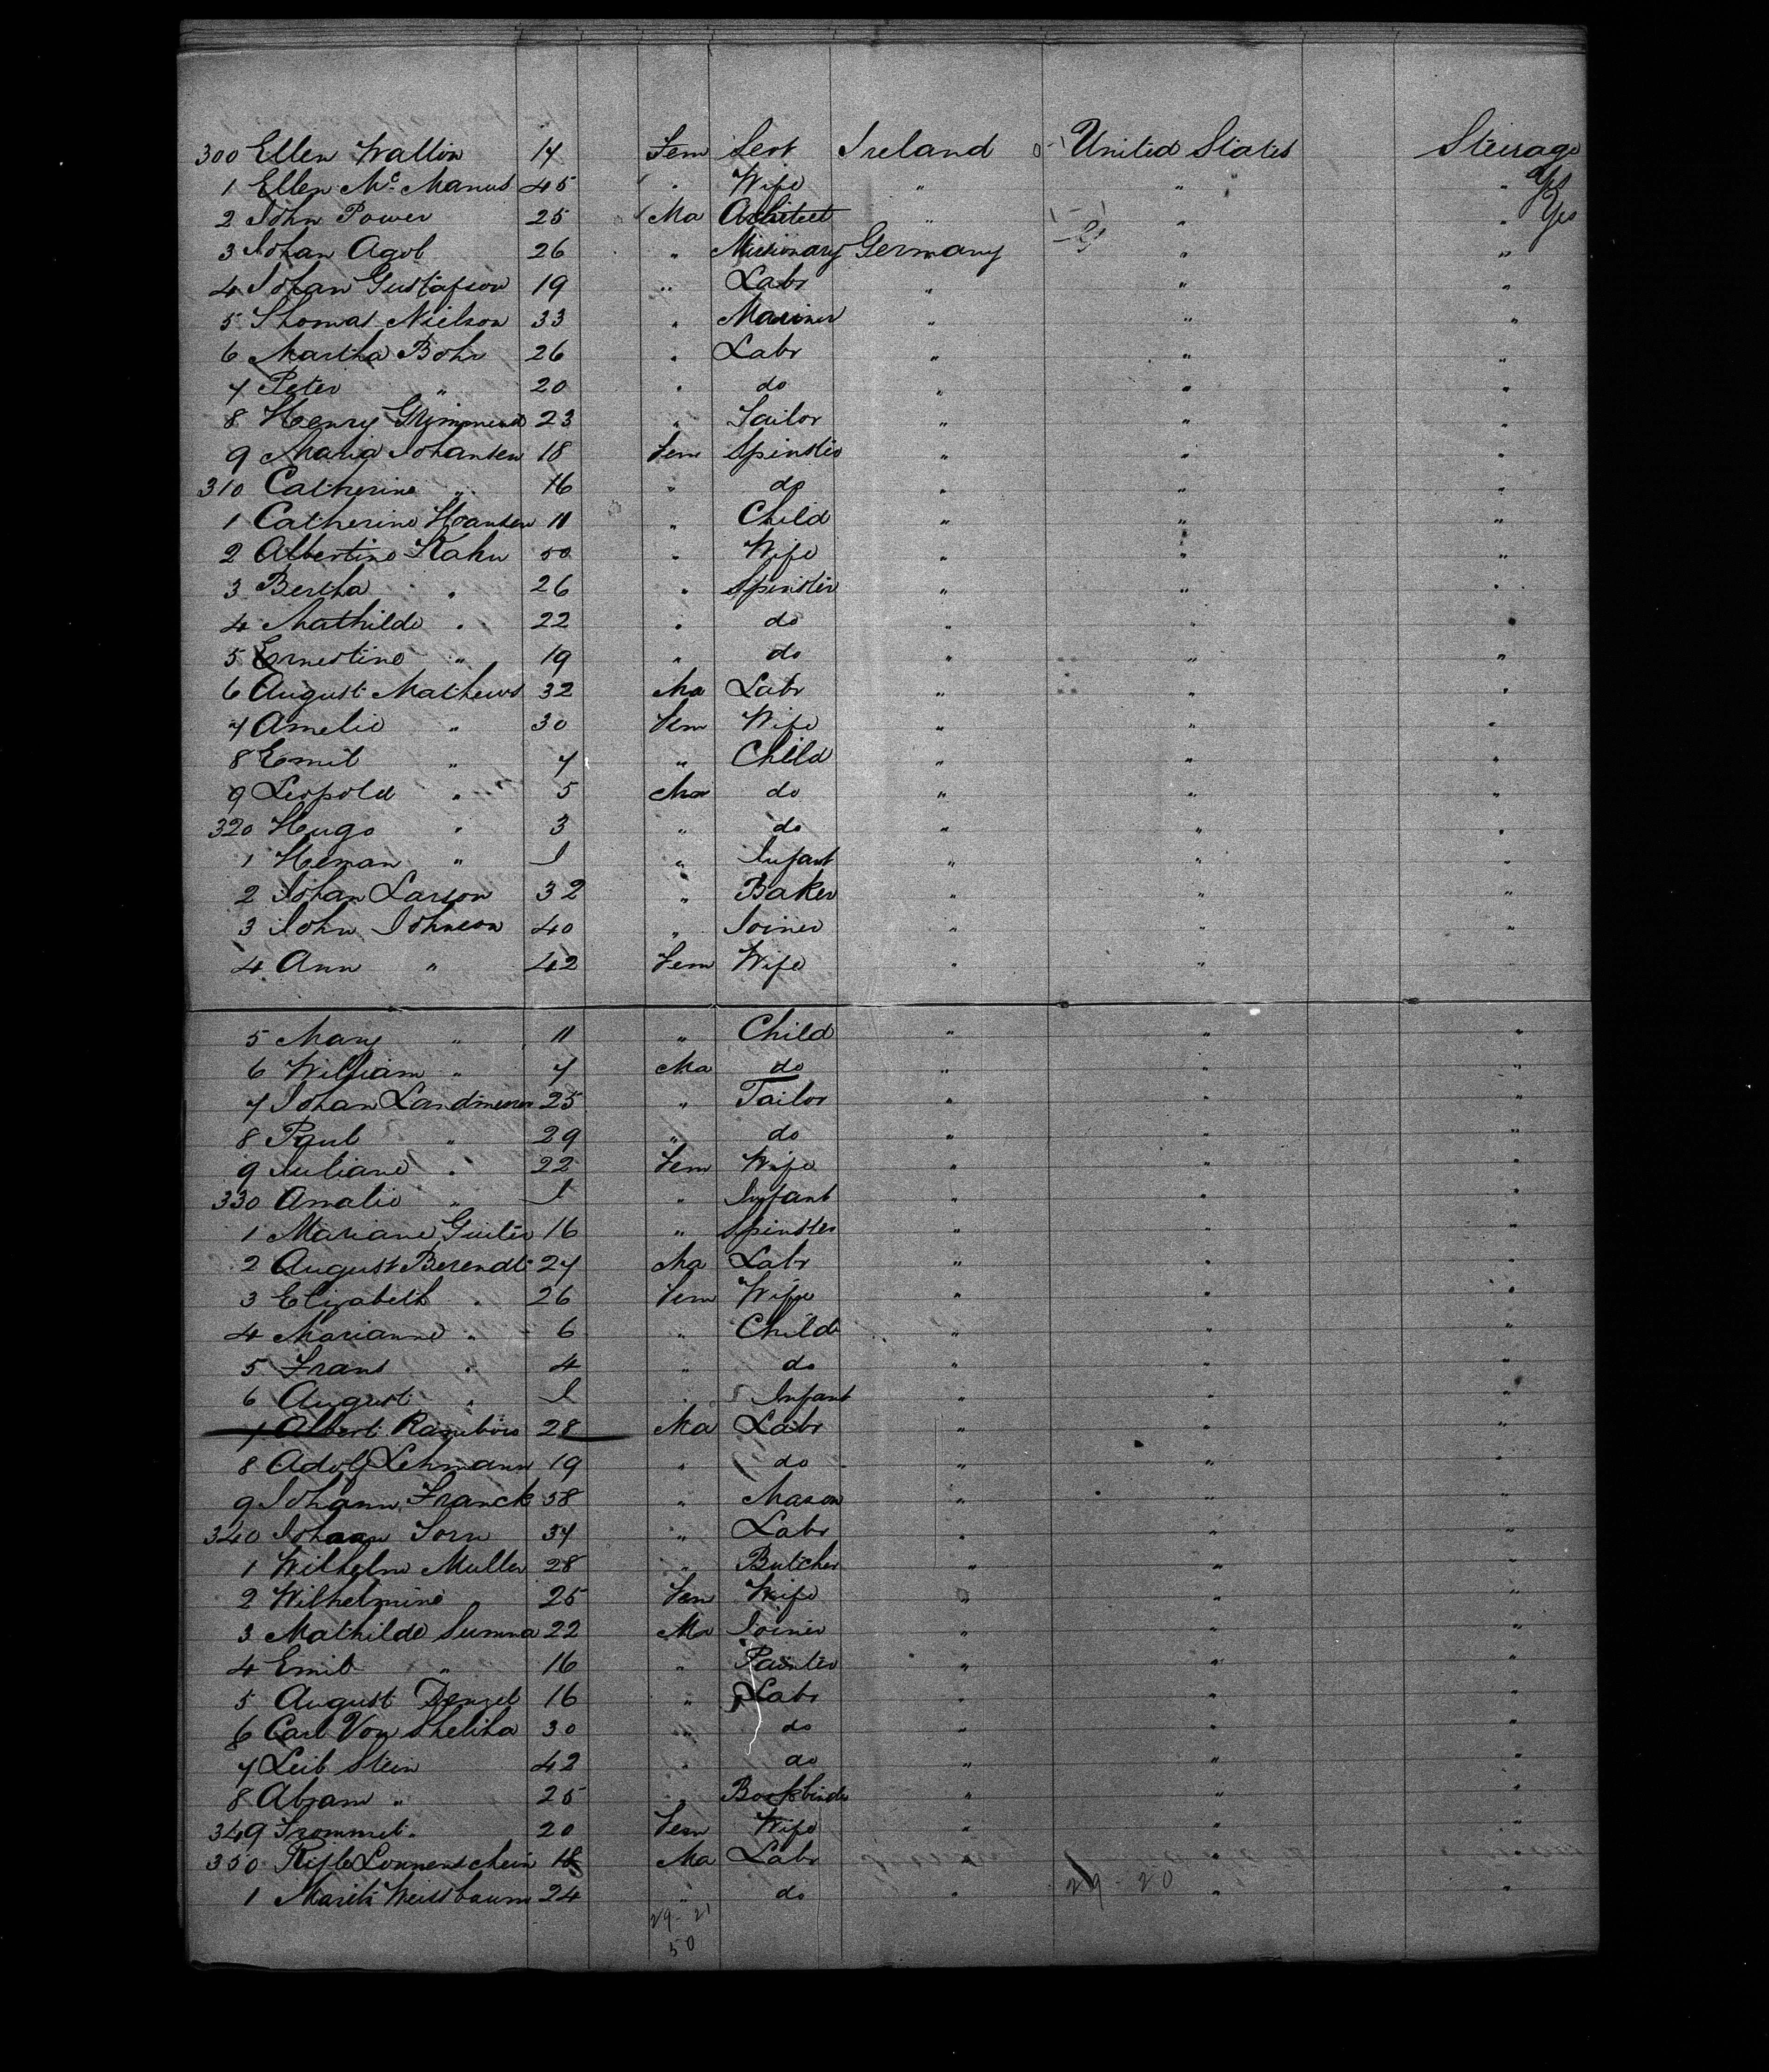 300 Ellen Walton 17 Fem Serv Ireland United States Steerage
1 Ellen McManus 45 " Wife " " " Yes
2 John Power 25 Ma Architect " " " Yes
3 Johan Agot 26 " Missionary Germany " "
4 Johan Gustafson 19 " Labr " " "
5 Thomas Nielson 33 " Mariner " " "
6 Martha Bohr 26 " Labr " " "
7 Peter " 20 " do " " "
8 Henry 23 " Tailor " " "
9 Maria Johansen 18 Fem Spinster " " "
310 Catherine " 16 " do " " "
1 Catherine Hoansen 11 " Child " " "
2 Albertine Kahn 50 " Wife " " "
3 Bertha " 26 " Spinster " " "
4 Mathilde " 22 " do " " "
5 Ernestine " 19 " do " " "
6 August Mathews 32 Ma Labr " " "
7 Amelie " 30 Fem Wife " " "
8 Emil " 7 " Child " " "
9 Leopold " 5 Ma do " " "
320 Hugo " 3 " do " " "
1 Heman " I " Infant " " "
2 Johan Larson 32 " Baker " " "
3 John Johnson 40 " Joiner " " "
4 Ann " 42 Fem Wife " "
5 Mary " 11 " Child " " "
6 William " 7 Ma do " " "
7 Johan Landmesser 25 " Tailor " " "
8 Paul " 29 " do " " "
9 Juliane " 22 Fem Wife " " "
330 Amalie " I " Infant " " "
1 Mariane Guiter 16 " Spinster " " "
2 August Berendt 27 Ma Labr " " "
3 Elizabeth " 26 Fem Wife " " "
4 Marianne " 6 " Child " " "
5 Frans " 4 " do " " "
6 August " I " Infant " " "
7 Albert 28 Ma Labr " " "
8 Adolf Lehmann 19 " do " " "
9 Johann Franck 38 " Mason " " "
340 Johann Torn 37 " Labr " " "
1 Wilhelm Muller 28 " Butcher " " "
2 Wilhelmine " 25 Fem Wife " " "
3 Mathilde Summa 22 Ma Joiner " " "
4 Emil " 16 " Painter " " "
5 August Denzel 16 " Labr " " "
6 Carl Von Sheliha 30 " do " " "
7 Leib Stein 42 " do " " "
8 Abram " 25 " Bookbinder " " "
349 Frommet " 20 Fem Wife " " "
350 Rifle Sonnenschein 18 Ma Labr " " "
1 Weissbaum 24 " do " 29-20 " "
29-21
50